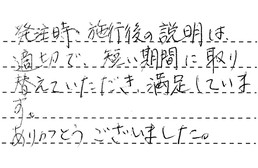 発注時、施行後の説明は
適切で、短い期間に取り
替えていただき満足していま
す。
ありがとうございました。